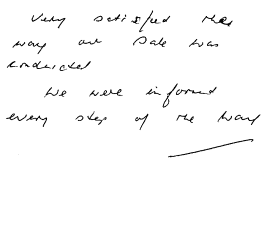 Very satisfied the
way our Sale was
conducted
We were informed
every step of the way